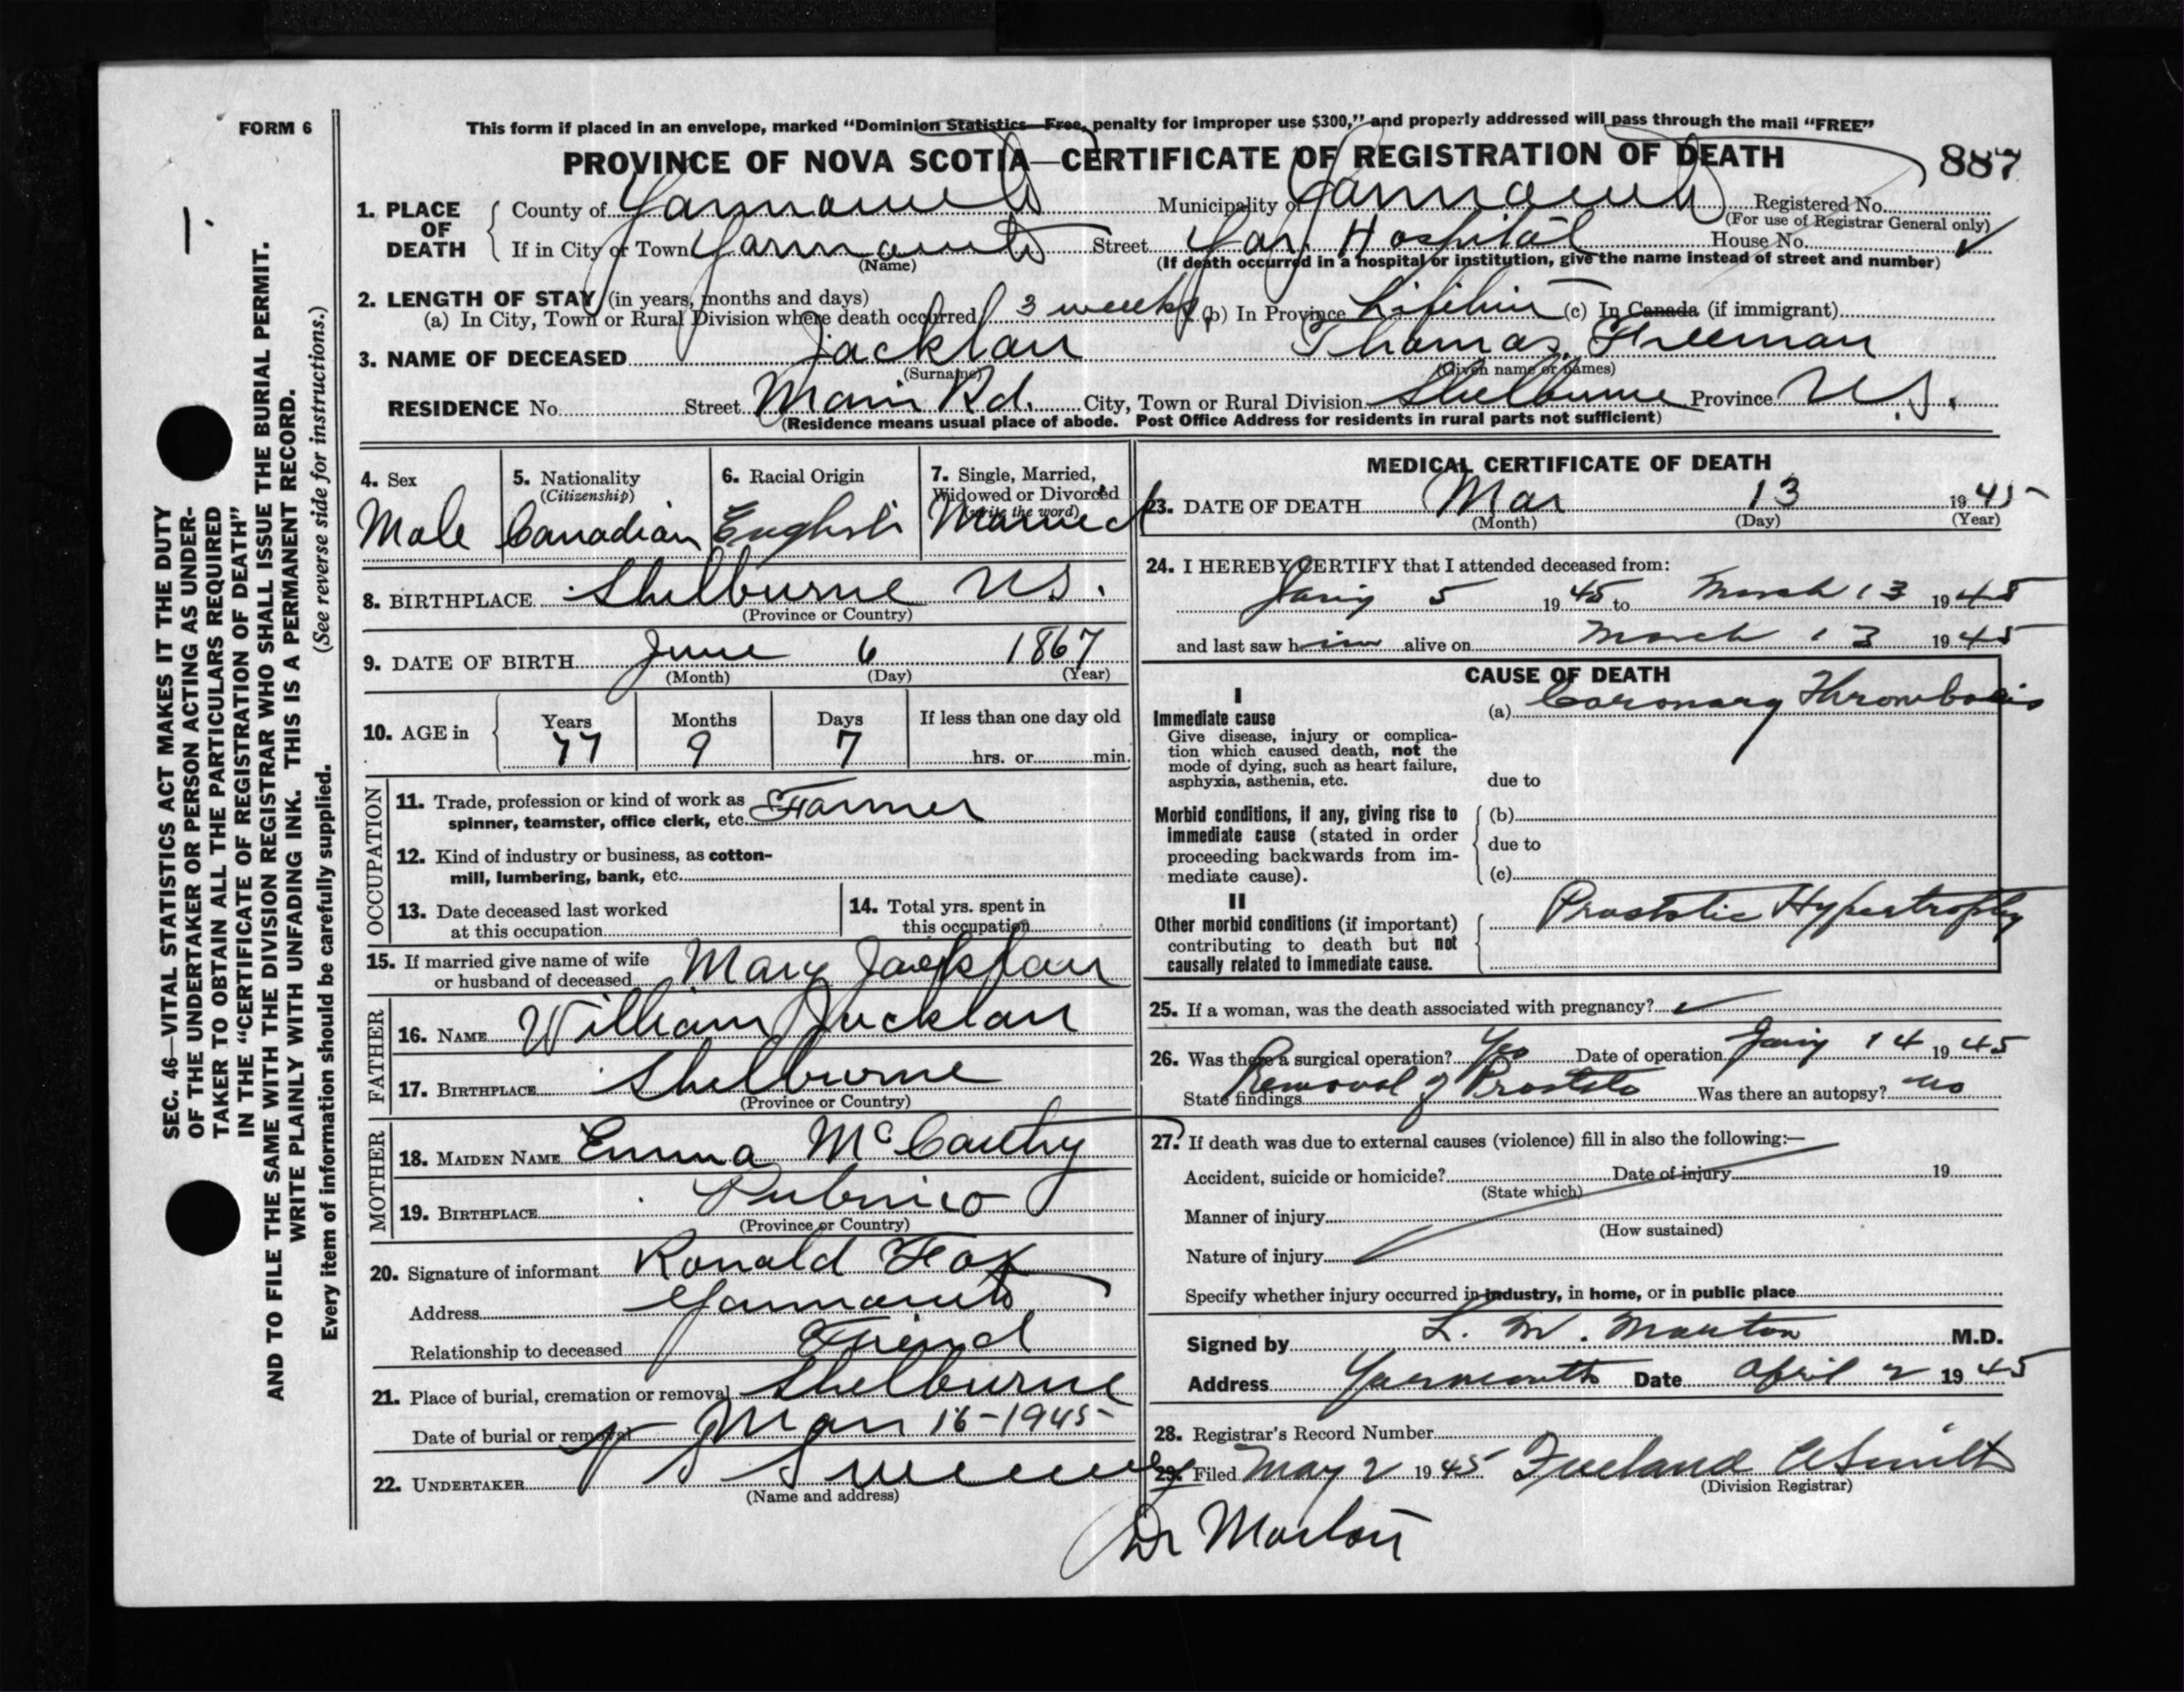 FORM 6
This form if placed in an envelope, marked "Dominion Statistics—Free, penalty for improper use $300," and properly addressed will pass through the mail "FREE"
PROVINCE OF NOVA SCOTIA—CERTIFICATE OF REGISTRATION OF DEATH
887
1. PLACE OF DEATH
County of Yarmouth Municipality of Yarmouth Registered No.
(For use of Registrar General only)
If in City or Town Yarmouth Street Yar. Hospital House No.
(Name) (If death occurred in a hospital or institution, give the name instead of street and number)
2. LENGTH OF STAY (in years, months and days)
(a) In City, Town or Rural Division where death occurred 3 weeks (b) In Province Lifetime (c) In Canada (if immigrant)
3. NAME OF DECEASED Jacklan Thomas Freeman
(Surname) (Given name or names)
RESIDENCE No. Street Main Rd. City, Town or Rural Division Shelburne Province N.S.
(Residence means usual place of abode. Post Office Address for residents in rural parts not sufficient)
4. Sex
Male
5. Nationality
(Citizenship)
Canadian
6. Racial Origin
English
7. Single, Married,
Widowed or Divorced
(write the word)
Married
8. BIRTHPLACE Shelburne N.S.
(Province or Country)
9. DATE OF BIRTH June 6 1867
(Month) (Day) (Year)
10. AGE in
Years Months Days If less than one day old
77 9 7 hrs. or min.
OCCUPATION
11. Trade, profession or kind of work as
spinner, teamster, office clerk, etc. Farmer
12. Kind of industry or business, as cotton-
mill, lumbering, bank, etc.
13. Date deceased last worked
at this occupation
14. Total yrs. spent in
this occupation
15. If married give name of wife
or husband of deceased Mary Jacklan
FATHER
16. NAME William Jacklan
17. BIRTHPLACE Shelburne
(Province or Country)
MOTHER
18. MAIDEN NAME Emma McCarthy
19. BIRTHPLACE Pubnico
(Province or Country)
20. Signature of informant Ronald Fox
Address Yarmouth
Relationship to deceased Friend
21. Place of burial, cremation or removal Shelburne
Date of burial or removal Mar 16-1945
22. UNDERTAKER Sweeny
(Name and address)
MEDICAL CERTIFICATE OF DEATH
23. DATE OF DEATH Mar 13 1945
(Month) (Day) (Year)
24. I HEREBY CERTIFY that I attended deceased from:
Jany 5 1945 to March 13 1945
and last saw him alive on March 13 1945
CAUSE OF DEATH
I
Immediate cause
Give disease, injury or complica-
tion which caused death, not the
mode of dying, such as heart failure,
asphyxia, asthenia, etc.
(a) Coronary Thrombosis
due to
Morbid conditions, if any, giving rise to
immediate cause (stated in order
proceeding backwards from im-
mediate cause).
(b)
due to
(c)
II
Other morbid conditions (if important)
contributing to death but not
causally related to immediate cause.
Prostatic Hypertrophy
25. If a woman, was the death associated with pregnancy?
26. Was there a surgical operation? Yes Date of operation Jany 14 1945
State findings Removal of Prostate Was there an autopsy? No
27. If death was due to external causes (violence) fill in also the following:—
Accident, suicide or homicide? Date of injury 19
(State which)
Manner of injury
(How sustained)
Nature of injury
Specify whether injury occurred in industry, in home, or in public place
Signed by L. M. Morton M.D.
Address Yarmouth Date April 2 1945
28. Registrar's Record Number
29. Filed May 2 1945 Freeland Smith
(Division Registrar)
Dr Morton
SEC. 46—VITAL STATISTICS ACT MAKES IT THE DUTY
OF THE UNDERTAKER OR PERSON ACTING AS UNDER-
TAKER TO OBTAIN ALL THE PARTICULARS REQUIRED
IN THE "CERTIFICATE OF REGISTRATION OF DEATH"
AND TO FILE THE SAME WITH THE DIVISION REGISTRAR WHO SHALL ISSUE THE BURIAL PERMIT.
WRITE PLAINLY WITH UNFADING INK. THIS IS A PERMANENT RECORD.
Every item of information should be carefully supplied. (See reverse side for instructions.)